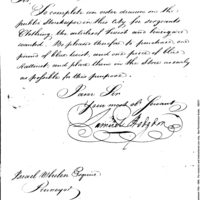 Sir
To complete an order drawn on the
public Storekeeper in this city for sergeants
Clothing, the articles of Twist and
wanted. Be pleased therefor to purchase one
pound of blue twist, and one piece of blue
and place them in the store as early
as possible for this purpose.
I am Sir
Your most ob. Servant
Samuel Hodgdon
Israel Whelen Esquire
Purveyor